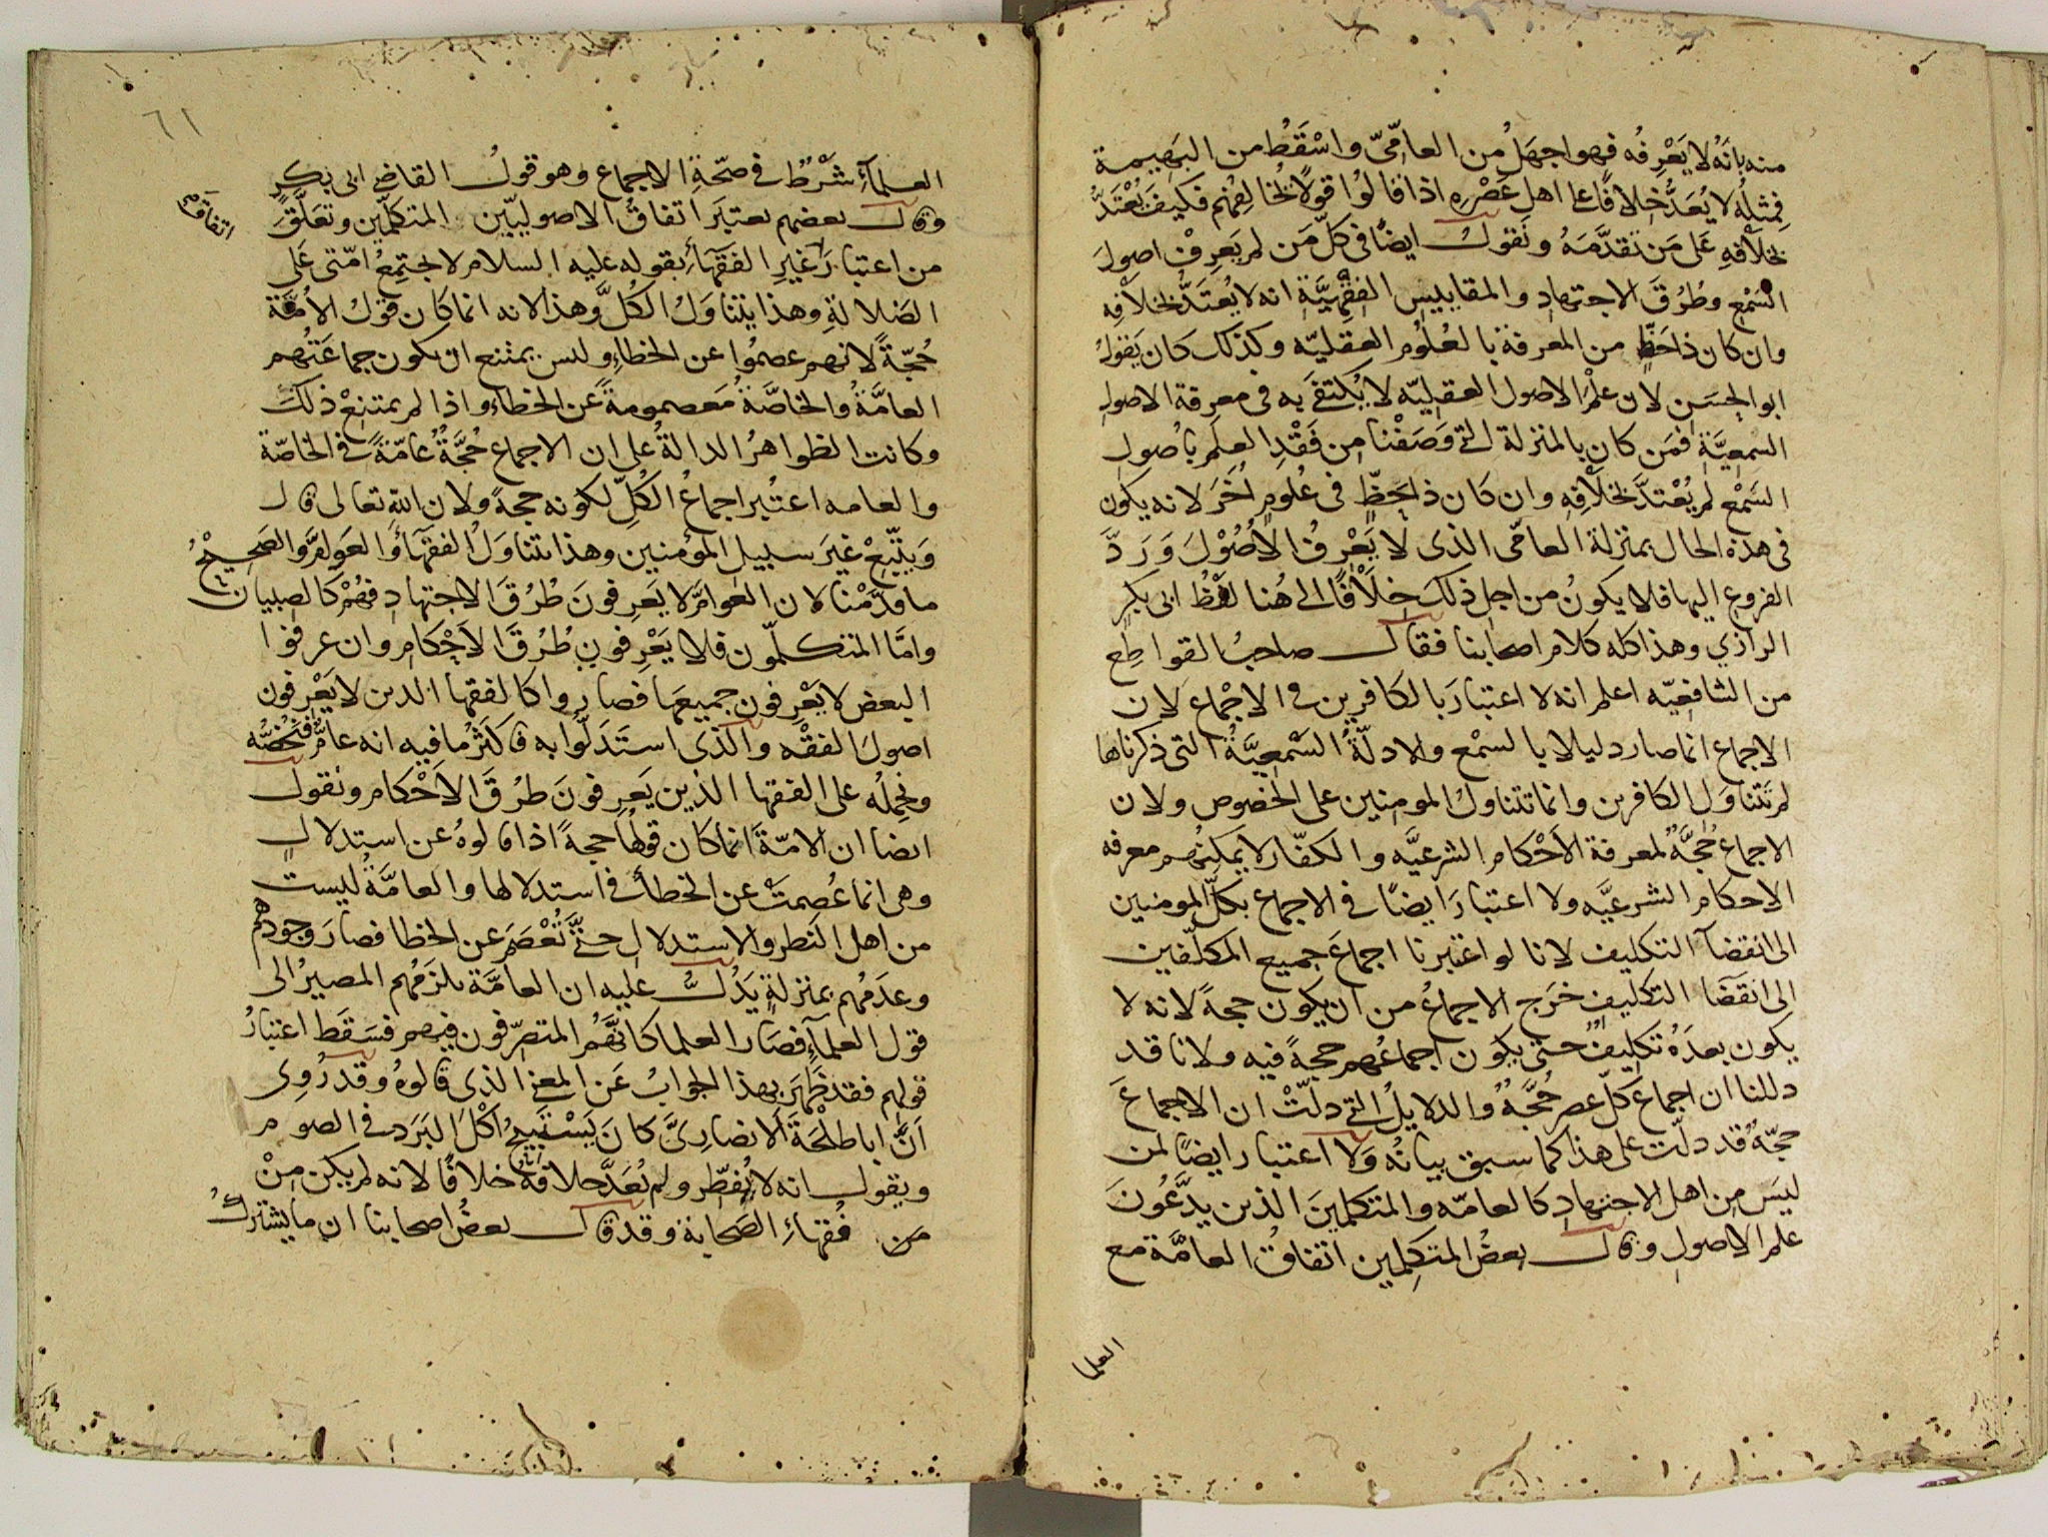 منه بانه لا يَعْرِفُه فهو اجهَلُ من العامّيّ واسْقَطُ من البَهيمة
فمِثلُهُ لا يُعَدُّ خِلافًا على اهل عَصْرِهِ اذا قالوُا قولًا تُخالِفُهُم فكيفَ يُعْتَدُّ
بخلافِهِ عَلى مَن تقدَّمَهُ ونَقولُ ايضًا فى كلّ مَن لم يَعرِفْ اصولَ
السّمْع وطُرُقَ الاجتهادِ والمقاييس الفقهيَّة انه لا يُعتَدُّ بخلافِه
وان كان ذا حَظٍّ من المعرفة بالعُلُوم العقليّه وكذلك كان يَقولُ
ابو الحسَن لان علْمَ الاصول العقليّه لا يُكتفَى به فى معرفة الاصول
السمعيَّة فَمَن كان بالمنزلة التى وَصَفْنا من فَقْدِ العلم باصُول
السَمْع لم يُعْتدَّ بخلافِه وان كان ذا حَظٍّ فى عُلومٍ أخَرَ لانه يكون
فى هذه الحال بمنزلة العامّى الذى لا يَعْرِفُ الاُصُوْلَ وَرَدَّ
الفروع اليها فلا يكونُ من اجل ذلك خِلَافًا الى هُنا لفظُ ابى بكر
الرازي وهذا كله كلام اصحابنا فقال صاحبُ القواطع
من الشافعيّه اعلم انه لا اعتبارَ بالكافرين فى الاجماع لان
الاجماع انما صار دليلا بالسمْع والادلّةُ السَمْعِيَّةُ التى ذكرناها
لم تَتناوَلِ الكافرين وانما تتناولُ المومنين على الخصوص ولان
الاجماع حُجَّةٌ لمعرفة الاَحْكام الشرعيَّه والكفّار لا يمكِنُهم معرفه
الاحكام الشرعيَّه ولا اعتبارَ ايضًا فى الاجماع بكلِّ المومنين
الى انقضآ التكليف لانا لو اعتبرنا اجماعَ جميع المكلّفين
الى انقضَا التكليف خرَج الاجماعُ من ان يكون حجةً لانه لا
يكون بعدَهُ تكليفٌ حتى يكون اجماعُهم حجةً فيه ولانا قد
دللنا ان اجماعَ كلّ عصر حُجَّةٌ والدلايلُ التى دلّتْ ان الاجماعَ
حجّةٌ قد دلّت على هذا كما سبق بيانُه ولا اعتبار ايضًا لمن
ليسَ مِن اهل الاجتهادِ كالعامّه والمتكلمينَ الذين يدَّعُونَ
علم الاصول وقال بعضُ المتكلِمين اتفاقُ العامَّة مع
العلما
٦١
العلمآءِ شَرْطٌ فى صحّةِ الاجماع وهو قولُ القاضى ابى بكرٍ
وقال بعضهم يعتبَر اتفاقُ الاصولييّين المتكلّمين وتعَلّقَ
اتفاقهم
من اعتبارَ غيرِ الفقهآءِ بقوله عليه السلام لا تجتمِعُ امّتى عَلى
الضلالةِ وهذا يتناوَلُ الكُلَّ وهذا لانه انما كان قولُ الاُمَّة
حُجّةً لانهم عصمُوا عن الخطاءِ وليس يمتنع ان يكون جماعَتُهم
العامَّةُ والخاصَّةُ مَعصومةً عن الخطاءِ واذا لم يمتنِعْ ذلك
وكانت الظواهرُ الدالةُ على ان الاجماع حُجَّةٌ عامّةً فى الخاصّة
والعامه اعتُبر اجماعُ الكُلِّ لكونه حجةً ولان اللّه تعالى قال
وَيتّبِعْ غيرَ سبيل المؤمنين وهذا يتناوَلُ الفقهآءَ والعَوامَّ والصَحِيْحُ
ما قدَّمْنا لان العوامَّ لا يَعرِفونَ طُرُقَ الاجتهادِ فهُمْ كالصبيان
وامَّا المتكلّمون فلا يَعْرِفون طُرُقَ الاَحْكام وان عرفوا
البعض لا يَعْرِفون جميعَها فصاروا كالفقها الذين لا يَعْرِفون
اصولَ الفقْه والذى استَدَلّوا به فاكثَرُ ما فيه انه عامٌّ فنَخُصُّه
ونحمِلُه على الفقها الذين يَعرِفونَ طرُقَ الاَحْكام ونقول
ايضا ان الامّةَ انما كان قولُها حجةً اذا قالوهُ عن استدلالٍ
وهى انما عُصِمَتْ عن الخطأ فى استدلالها والعامَّةُ ليست
من اهل النظر والاستدلال حتَّى تُعْصَمَ عن الخطا فصارَ وجودُهم
وعدَمُهم بمنزلةٍ يَدُلُّ عليه ان العامَّة يلزَمُهم المصيرُ الى
قول العلمآءِ فصَار العلما كانَّهُم المتصرّفون فيهم فسَقط اعتبارُ
قولهم فقد ظهَرَ بهذا الجوابُ عَن المعنى الذى قالوهُ وقد رُوِى
اَنَّ ابا طلْحَةَ الانصارِىَّ كانَ يَسْتَبِيحُ اَكْلَ البَرَد فى الصوم
ويقول انه لا يُفَطّر ولم يُعَدَّ خلافهُ خلافًا لانه لم يكن مِنْ
من فُقهاءِ الصَحابة وقد قال بعضُ اصحابنا ان ما يشترِكُ